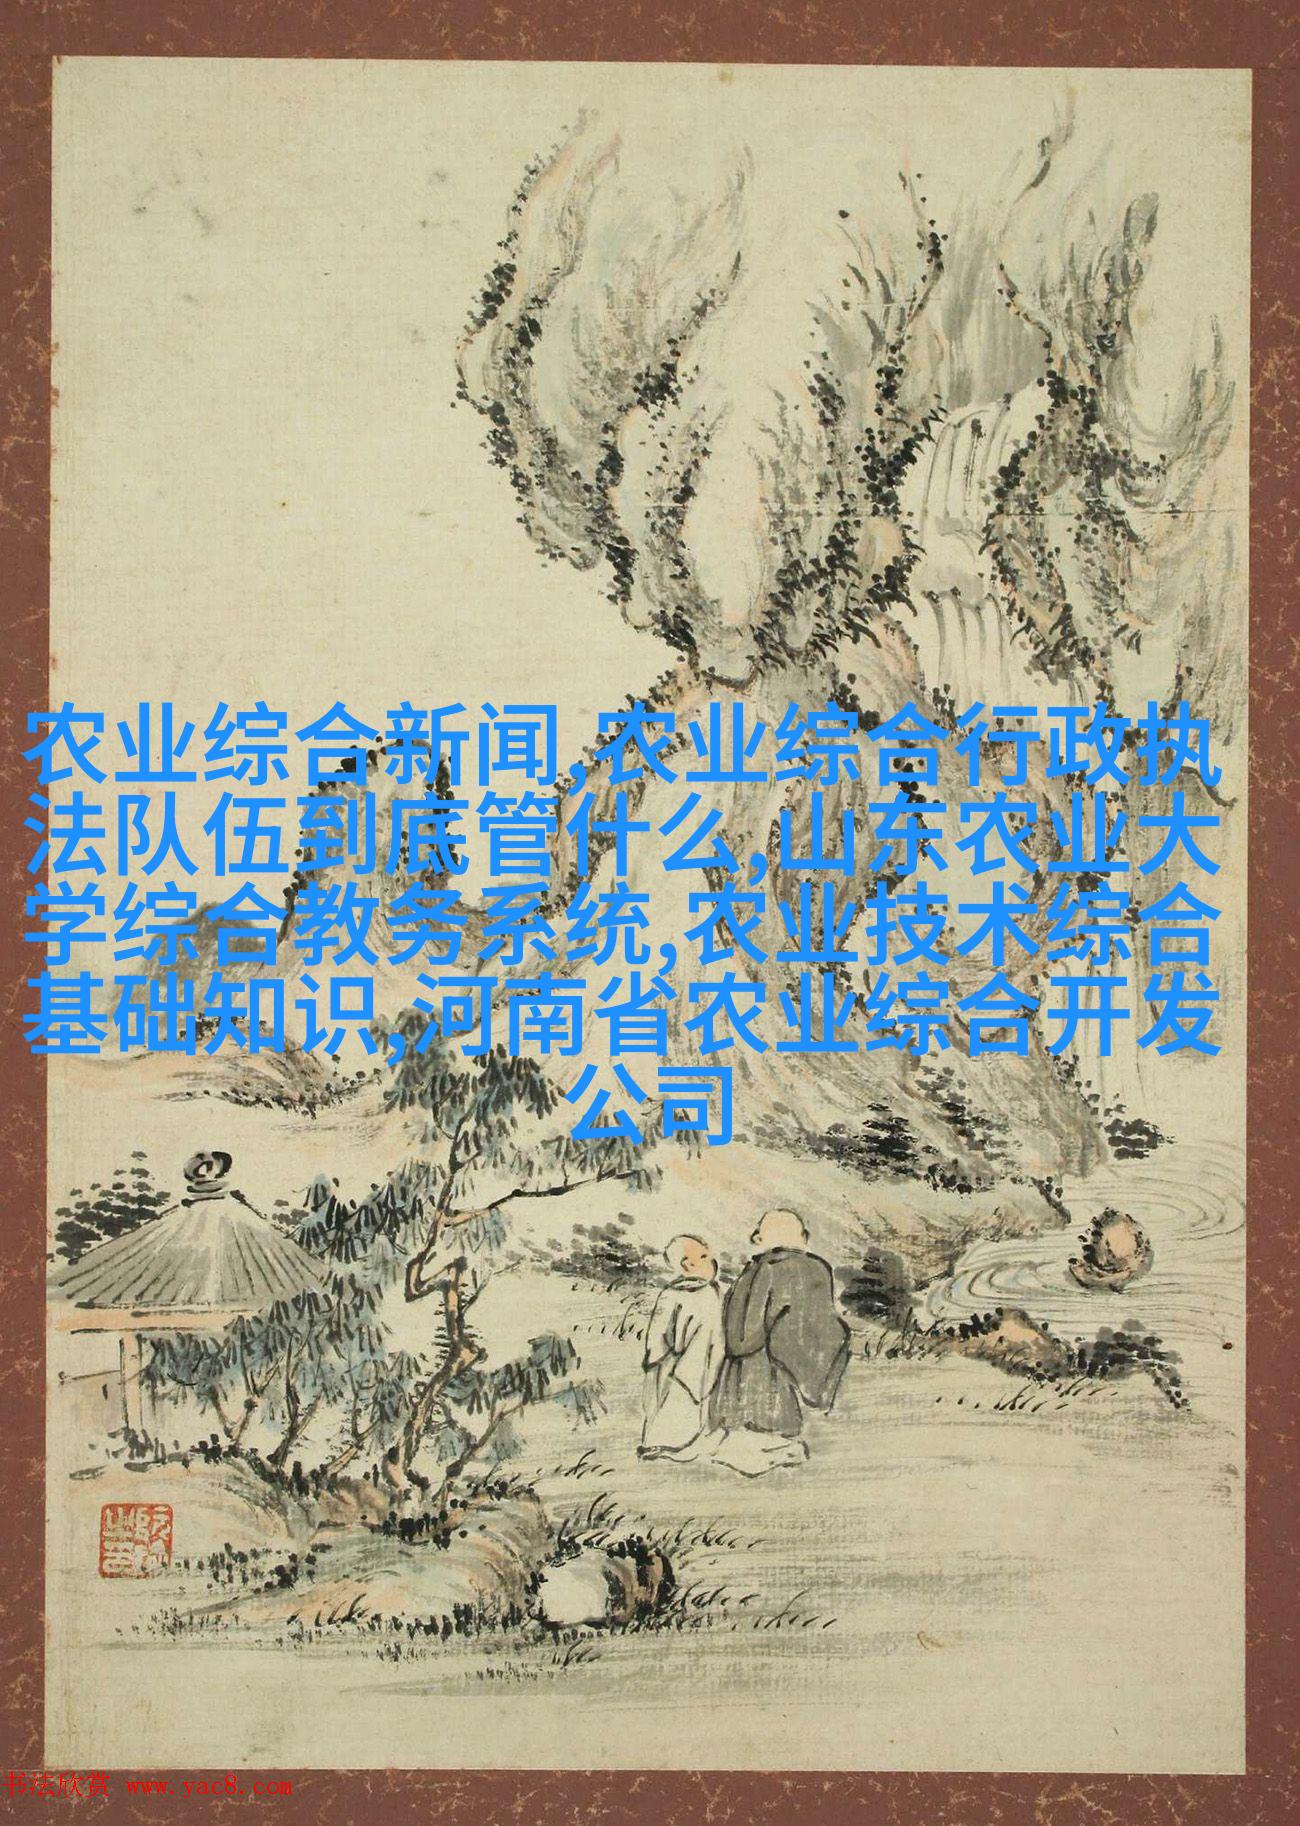 农业综合新闻,农业综合行政执
法队伍到底管什么,山东农业大
学综合教务系统,农业技术综合
基础知识,河南省农业综合开发
公司
书法欣赏 www.yac8.com